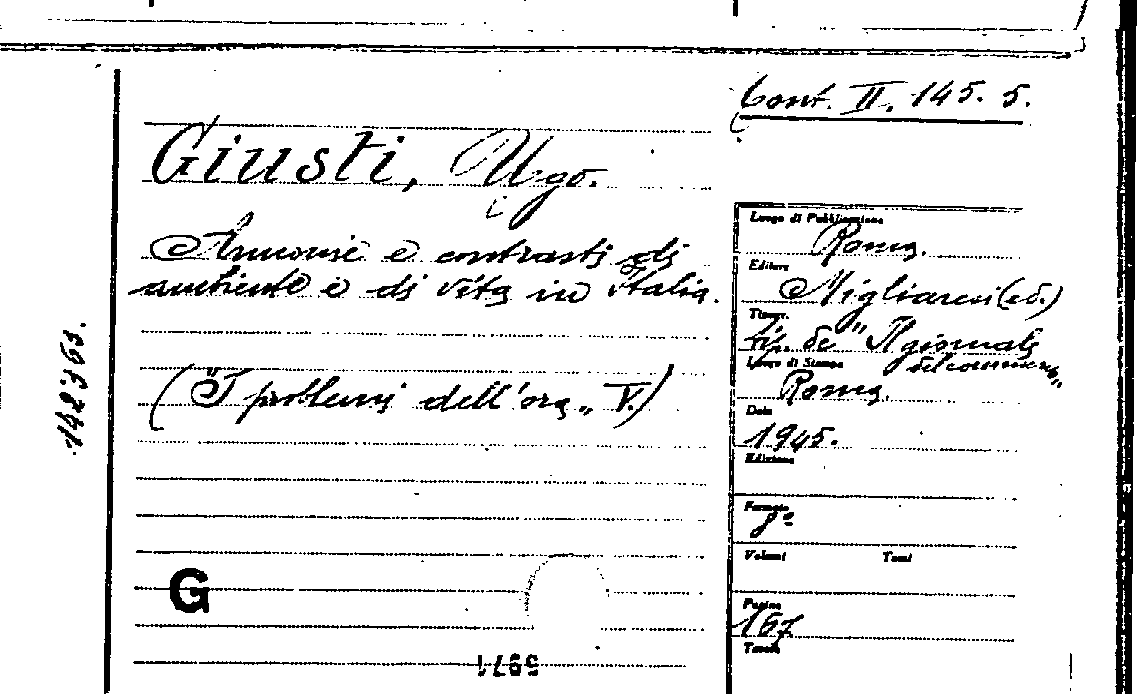 Cont. II. 145. 5.
Giusti, Ugo.
Armonie e contrasti di
ambiente e di vita in Italia.
("I problemi dell'ora„ V.)
142763.
G
Luogo di Pubblicazione
Roma.
Editore
Migliaresi (ed.)
Tipogr.
tip. de "Il giornale
del commercio„
Luogo di Stampa
Roma.
Data
1945.
Edizione
Formato
8º
Volumi Tomi
Pagine
167
Tavole